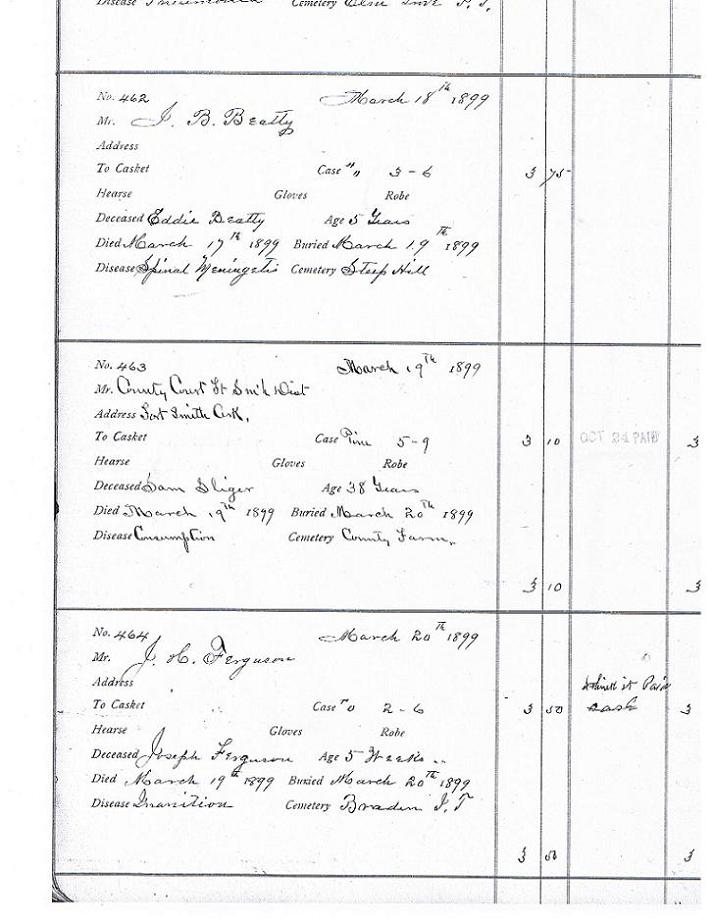 Disease Pneumonia Cemetery I.T.
No. 462 March 18th 1899
Mr. J. B. Beatty
Address
To Casket Case " " 3-6 3 75
Hearse Gloves Robe
Deceased Eddie Beatty Age 5 Years
Died March 17th 1899 Buried March 19th 1899
Disease Spinal Meningetis Cemetery Steep Hill
No. 463 March 19th 1899
Mr. County Court Ft Smith Dist
Address Fort Smith Ark,
To Casket Case Pine 5-9 3 10 OCT 24 PAID 3
Hearse Gloves Robe
Deceased Sam Sliger Age 38 Years
Died March 19th 1899 Buried March 20th 1899
Disease Consumption Cemetery County Farm,
3 10 3
No. 464 March 20th 1899
Mr. J. H. Ferguson
Address I think it Paid
To Casket Case " 2-6 3 50 cash 3
Hearse Gloves Robe
Deceased Joseph Ferguson Age 5 Weeks
Died March 19th 1899 Buried March 20th 1899
Disease Inanition Cemetery Braden I.T
3 50 3